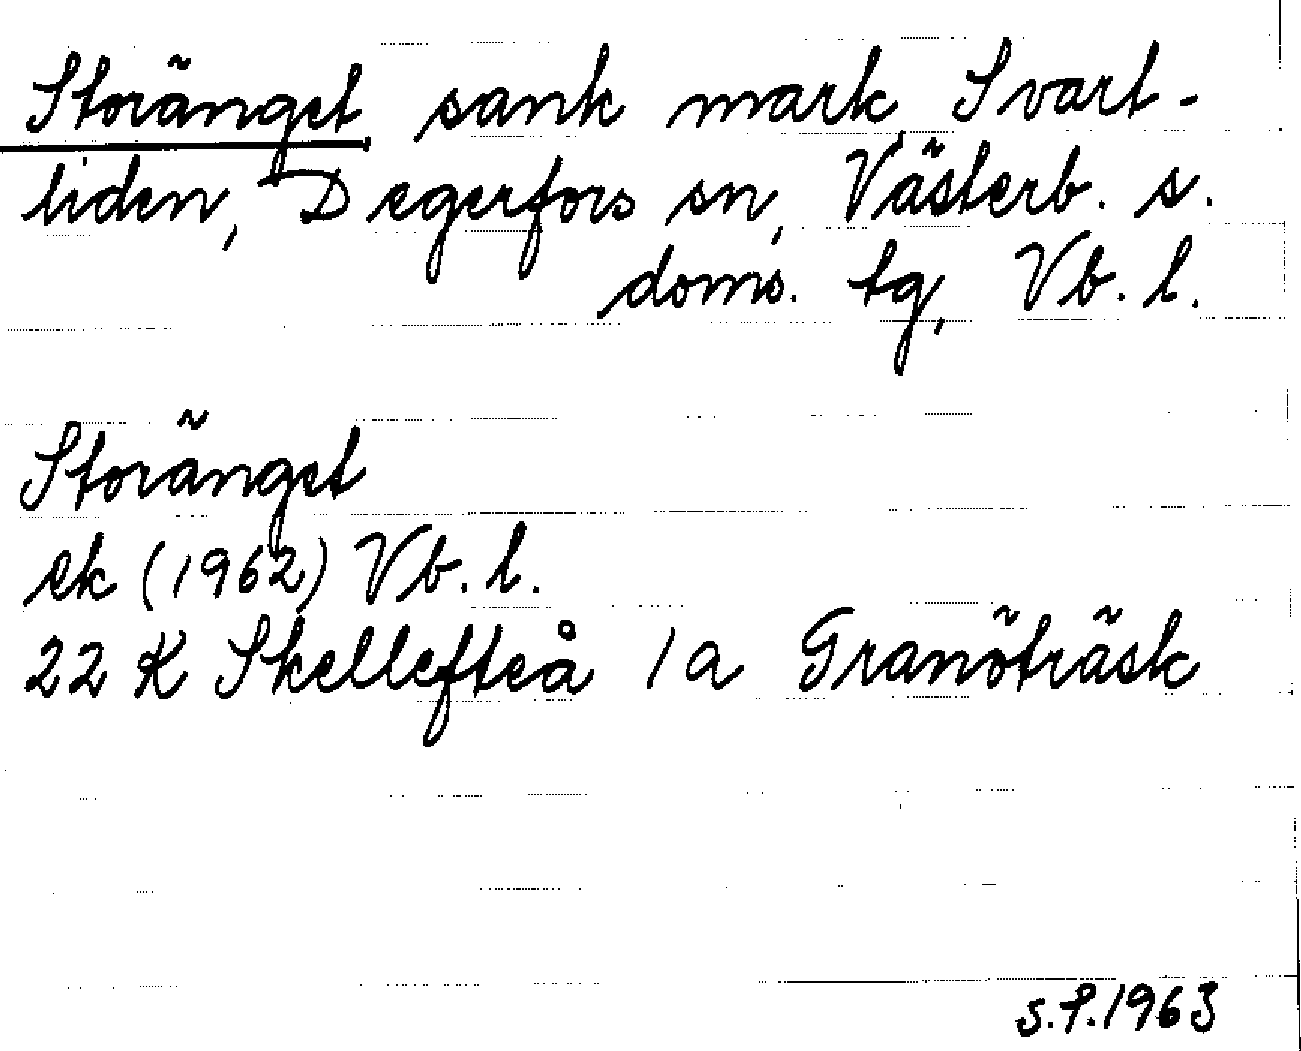 Storänget, sank mark, Svart-
liden, Degerfors sn, Västerb. s.
doms. tg, Vb. l.
Storänget
ek (1962) Vb. l.
22 K Skellefteå 1a Granöträsk
S.P. 1963